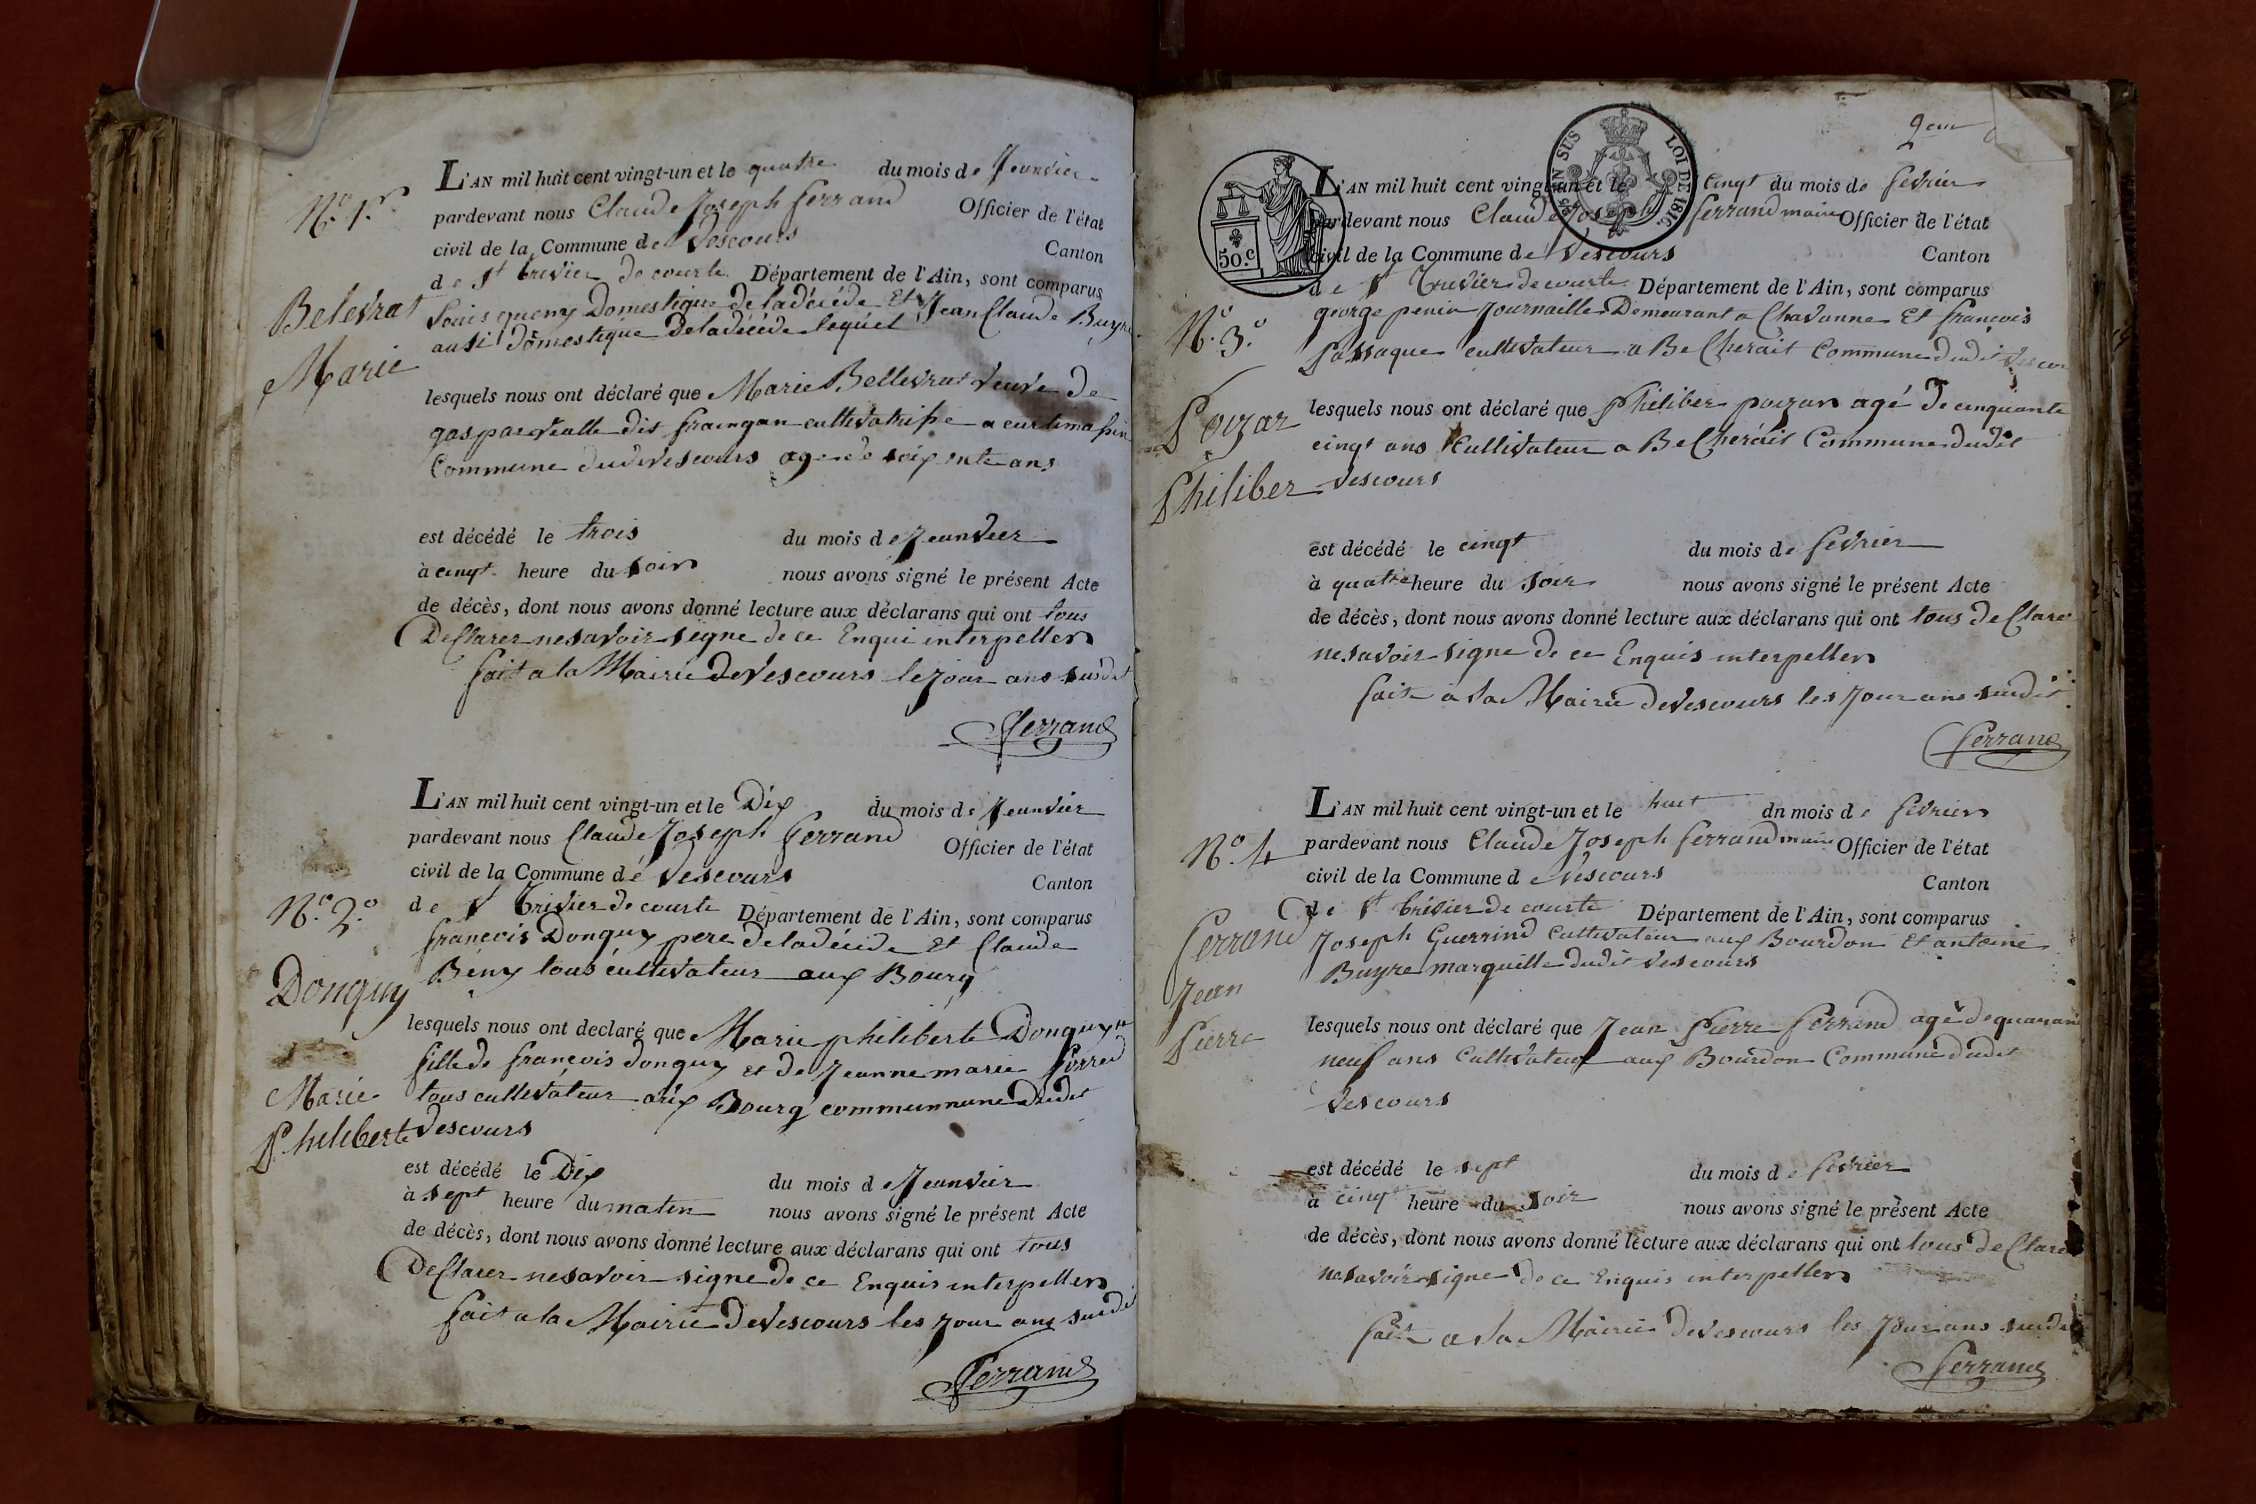 N.° 1.r
Belevrat
Marie
L'AN mil huit cent vingt-un et le quatre du mois de Jeanvier
pardevant nous Claude Joseph ferrand Officier de l'état
civil de la Commune de Vescours Canton
de St trivier de courte Département de l'Ain, sont comparus
Louis queny Domestique de la décéde Et Jean Claude Buyre
ausi domestique De la décéde lequel
lesquels nous ont déclaré que Marie Bellevrat veuve de
gaspar vialle dit fraingan cultivatrisse a
Commune dudit vescours agé de soixente ans
est décédé le trois du mois de Jeanvier
à cinqt heure du soir nous avons signé le présent Acte
de décès, dont nous avons donné lecture aux déclarans qui ont tous
Declarer ne savoir signe de ce Enqui interpeller
fait a la Mairie de Vescours le jour ans susdit
Ferrand
N.° 2.°
Donguy
Marie
Philiberte
L'AN mil huit cent vingt-un et le Dix du mois de Jeanvier
pardevant nous Claude Joseph ferrand Officier de l'état
civil de la Commune de Vescours Canton
de St Trivier de courte Département de l'Ain, sont comparus
francois Donguy pere de la décéde Et Claude
Bény tous cultivateur aux Bourg
lesquels nous ont declaré que Marie philiberte Donguy
fille de francois donguy et de Jeanne marie
tous cultivateur aux Bourg communnune dudit
Vescours
est décédé le Dix du mois de Jeanvier
à sept heure du matin nous avons signé le présent Acte
de décès, dont nous avons donné lecture aux déclarans qui ont tous
Declarer ne savoir signe de ce Enquis interpeller
fait a la Mairie de Vescours les jour ans susdi
Ferrand
2eme
50.c
TIMB. EN SUS LOI DE 1816
N.° 3.°
Poizar
Philiber
L'AN mil huit cent vingt-un et le cinqt du mois de fevrier
pardevant nous Claude Joseph ferrand maire Officier de l'état
civil de la Commune de Vescours Canton
de St Trivier de courte Département de l'Ain, sont comparus
george penin Journaillier Demeurant a Chavanne Et francois
Passaque cultivateur a Becherait Commune dudit Vescou
lesquels nous ont déclaré que Philiber poizar agé de cinquante
cinqt ans Cultivateur a Becherait Commune dudit
Vescours
est décédé le cinqt du mois de fevrier
à quatre heure du soir nous avons signé le présent Acte
de décès, dont nous avons donné lecture aux déclarans qui ont tous declarer
ne savoir signe de ce Enquis interpeller
fait a la Mairie de Vescours les jour ans susdit
Ferrand
N.° 4
Ferrand
Jean
Pierre
L'AN mil huit cent vingt-un et le huit dn mois de fevrier
pardevant nous Claude Joseph ferrand maire Officier de l'état
civil de la Commune de Vescours Canton
de St trivier de courte Département de l'Ain, sont comparus
Joseph Guerrind Cultivateur aux Bourdon Et antoine
Buyre marguille dudit Vescours
lesquels nous ont déclaré que Jean Pierre ferrand agé de quarante
neuf ans Cultivateur aux Bourdon Commune dudit
Vescours
est décédé le sept du mois de fevrier
à cinqt heure du soir nous avons signé le présent Acte
de décès, dont nous avons donné lecture aux déclarans qui ont tous declarer
ne savoir signe de ce Enquis interpeller
fait a la Mairie de Vescours les jour ans susdi
Ferrand